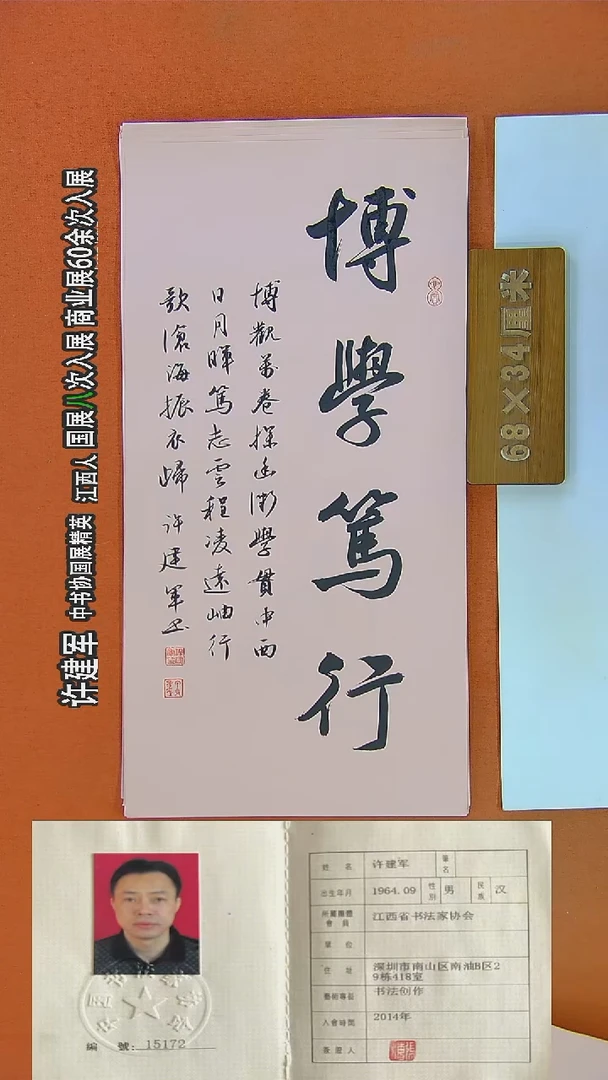 博學篤行
博觀萬卷探幽微學貫中西
日月暉篤志雲程凌遠岫行
歌滄海振衣歸 许建軍书
许建军 中书协国展精英 江西人 国展八次入展 商业展60余次入展
68×34厘米
編 號:15172
姓 名 许建军 筆名
出生年月 1964.09 性别 男 民族 汉
所屬團體會員 江西省书法家协会
單 位
住 址 深圳市南山区南油B区2
9栋418室
藝術專長 书法创作
入會時間 2014年
簽證人